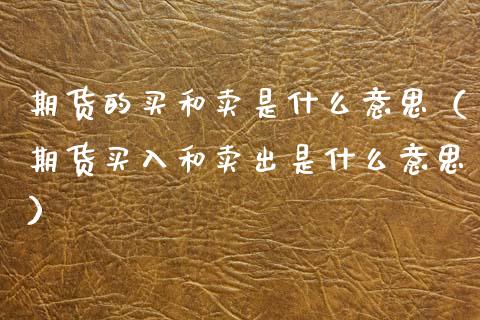 期货的买和卖是什么意思（
期货买入和卖出是什么意思
）